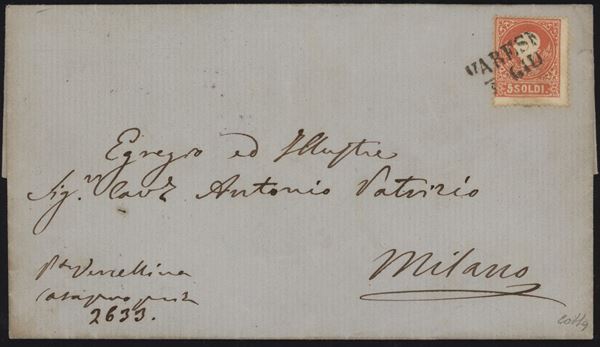 VARESE
GIU
5 SOLDI
Egregio ed Illustre
Sig.r Cav.r Antonio Patrizio
Milano
P.ta Vercellina
Casa propria
2633.